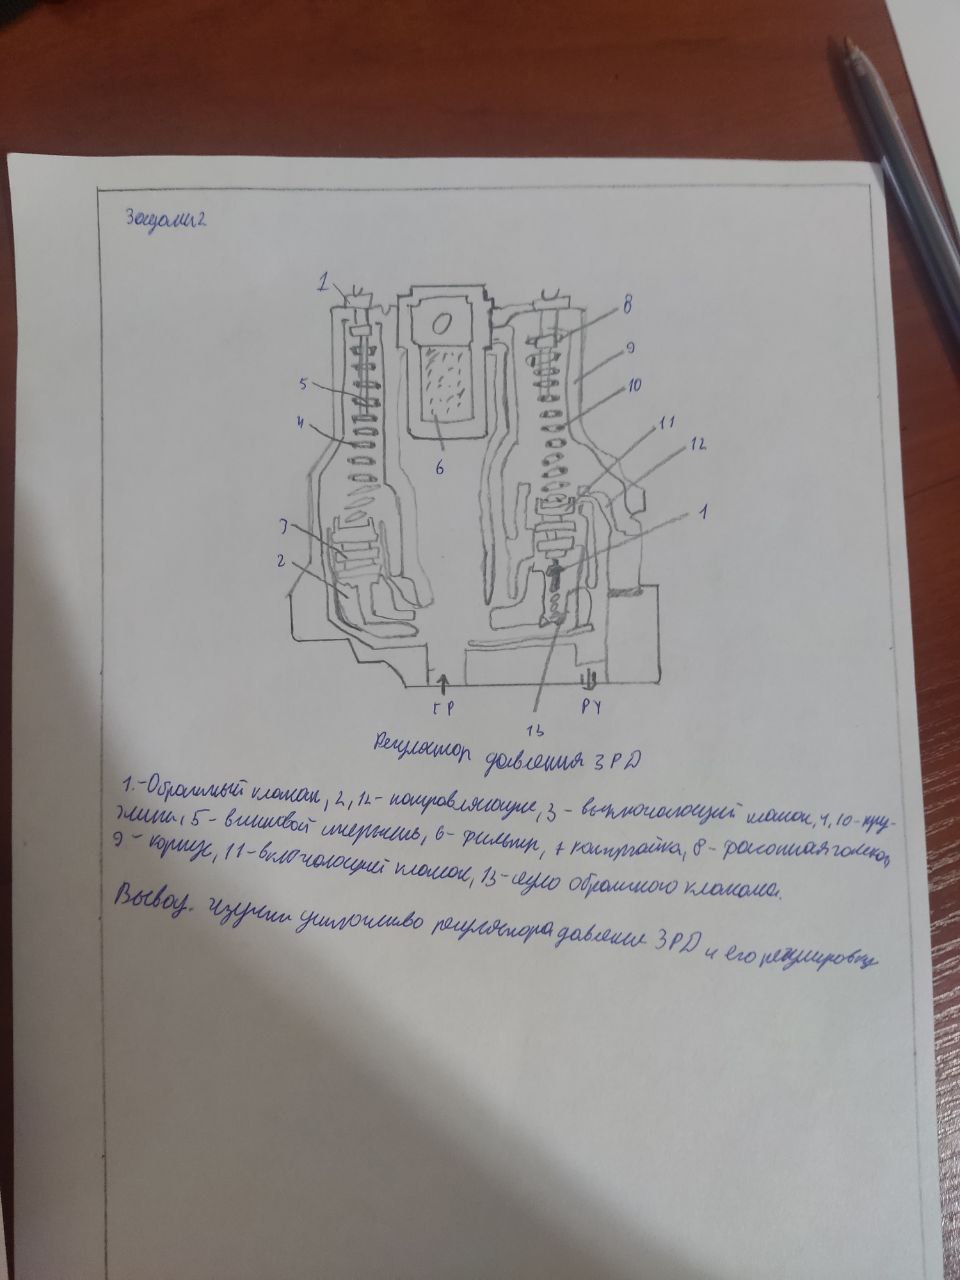 Задание 2
1
8
9
5
10
4
11
6
12
3
1
2
ГР
РУ
13
Регулятор давления ЗРД
1.-Обратный клапан, 2, 12- направляющие, 3 - выключающий клапан, 4, 10-пру-
жины, 5 - винтовой стержень, 6- фильтр, 7 контргайка, 8- фасонная головка,
9- корпус, 11-включающий клапан, 13-седло обратного клапана.
Вывод. изучили устройство регулятора давления ЗРД и его регулировку